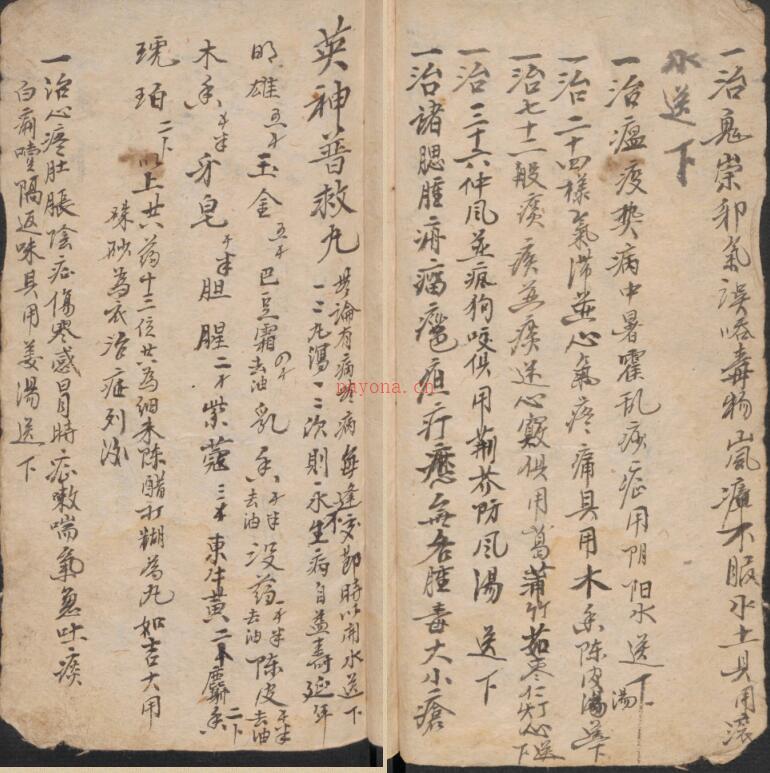 一治鬼祟邪氣誤吃毒物嵐瘴不服水土具用滾
水送下
一治瘟疫热病中暑霍乱痧症用阴阳水送下
一治二十四樣氣滯並心氣疼痛具用木香陳皮湯送下
一治七十二般痰疾並痰迷心竅俱用菖蒲竹茹枣仁灯心送下
一治三十六仲風並瘋狗咬俱用荊芥防風湯送下
一治諸腮腫痈瘤疽疔無名腫毒大小瘡
英神普救丸
論有病無病每逢交節時以開水送下
一二丸瀉一二次則永生病自益壽延年
明雄五个玉金五个巴豆霜四个去油乳香个半去油没药个半去油陳皮个半去油
木香个半牙皂个半胆腥二个紫蔻三个東牛黄二个麝香二下
琥珀二下以上共药十三位共為細末陈醋打糊為丸如吉大用
珠砂為衣治症列後
一治心疼肚脹陰症傷寒感冒時症嗽喘氣急吐痰
白痢噎隔返味具用姜湯送下
phyona.cn